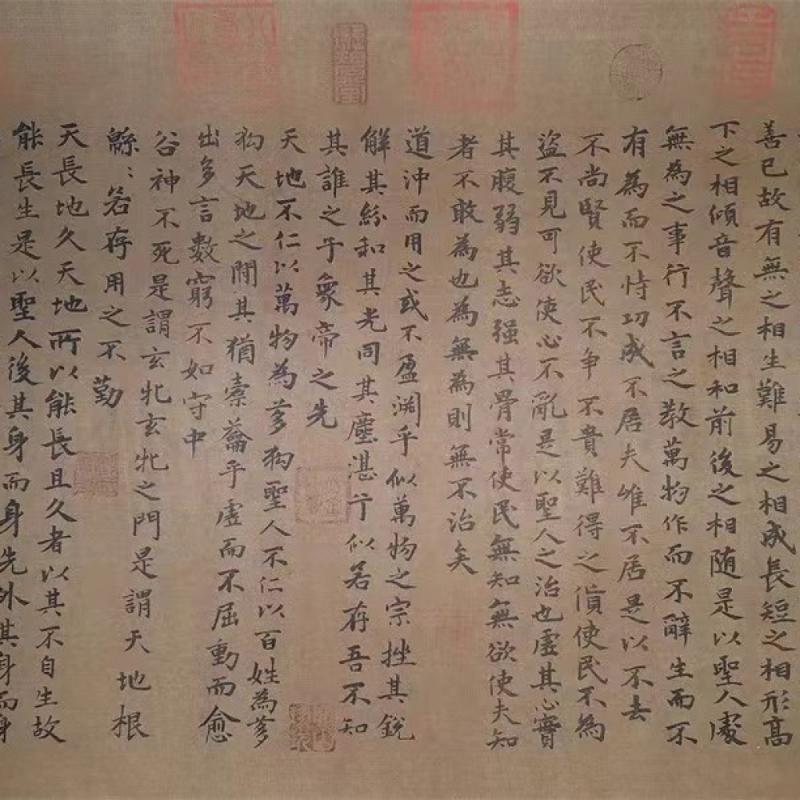 善已故有無之相生難易之相成長短之相形高
下之相傾音聲之相和前後之相随是以聖人處
無為之事行不言之教萬物作而不辭生而不
有為而不恃功成不居夫惟不居是以不去
不尚賢使民不争不貴難得之貨使民不為
盜不見可欲使心不亂是以聖人之治也虛其心實
其腹弱其志强其骨常使民無知無欲使夫知
者不敢為也為無為則無不治矣
道沖而用之或不盈淵乎似萬物之宗挫其銳
解其紛和其光同其塵湛兮似若存吾不知
其誰之子象帝之先
天地不仁以萬物為芻狗聖人不仁以百姓為芻
狗天地之間其猶橐籥乎虛而不屈動而愈
出多言數窮不如守中
谷神不死是謂玄牝玄牝之門是謂天地根
緜〻若存用之不勤
天長地久天地所以能長且久者以其不自生故
能長生是以聖人後其身而身先外其身而身